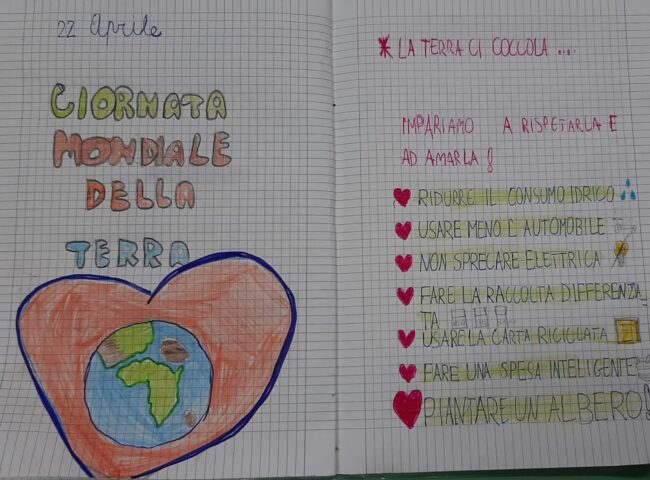 22 Aprile
GIORNATA
MONDIALE
DELLA
TERRA
* LA TERRA CI COCCOLA ....
IMPARIAMO A RISPETARLA E
AD AMARLA !
RIDURRE IL CONSUMO IDRICO
USARE MENO L AUTOMOBILE
NON SPRECARE ELETTRICA
FARE LA RACCOLTA DIFFERENZIA_
TA
USARE LA CARTA RICICLATA
FARE UNA SPESA INTELIGENTE
PIANTARE UN ALBERO!